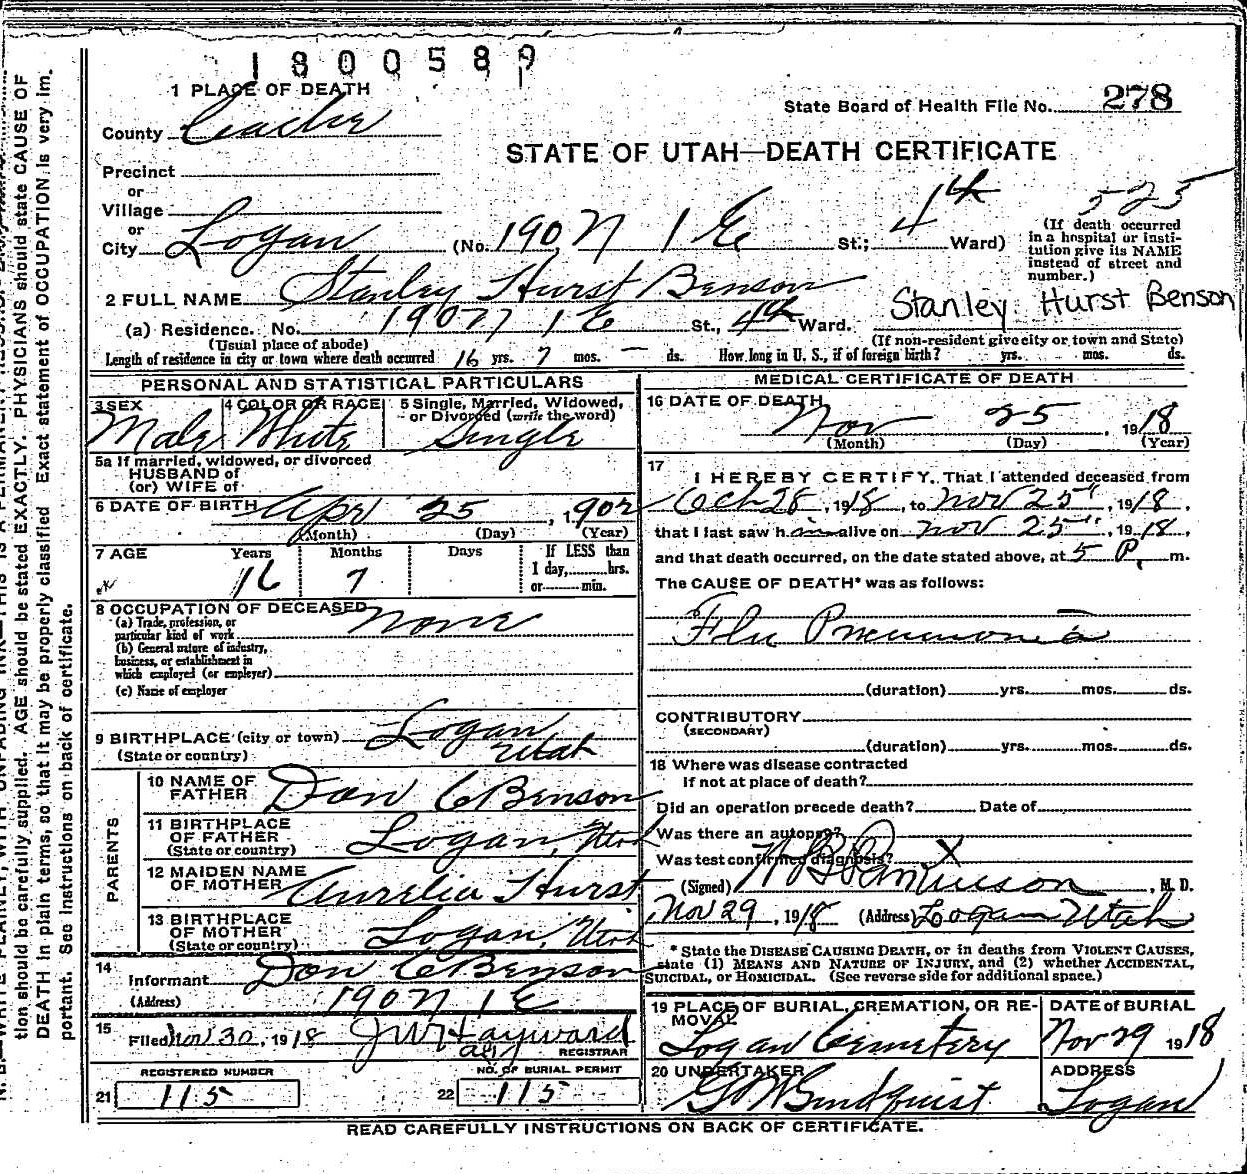 1800589
1 PLACE OF DEATH
State Board of Health File No. 278
County Cache
STATE OF UTAH—DEATH CERTIFICATE
Precinct
or
Village
or
City Logan (No. 190 N 1 E St.; 4th Ward)
525
(If death occurred
in a hospital or insti-
tution give its NAME
instead of street and
number.)
2 FULL NAME Stanley Hurst Benson
Stanley Hurst Benson
(a) Residence. No. 190 N 1 E St., 4th Ward.
(Usual place of abode)
(If non-resident give city or town and State)
Length of residence in city or town where death occurred 16 yrs. 7 mos. — ds. How long in U. S., if of foreign birth? yrs. mos. ds.
PERSONAL AND STATISTICAL PARTICULARS
3 SEX Male
4 COLOR OR RACE White
5 Single, Married, Widowed,
or Divorced (write the word)
Single
5a If married, widowed, or divorced
HUSBAND of
(or) WIFE of
6 DATE OF BIRTH Apr 25, 1902
(Month) (Day) (Year)
7 AGE Years Months Days If LESS than
16 7 1 day, hrs.
or min.
8 OCCUPATION OF DECEASED None
(a) Trade, profession, or
particular kind of work
(b) General nature of industry,
business, or establishment in
which employed (or employer)
(c) Name of employer
9 BIRTHPLACE (city or town) Logan
(State or country) Utah
PARENTS
10 NAME OF
FATHER Don C Benson
11 BIRTHPLACE
OF FATHER Logan, Utah
(State or country)
12 MAIDEN NAME
OF MOTHER Aurelia Hurst
13 BIRTHPLACE
OF MOTHER Logan, Utah
(State or country)
14
Informant Don C Benson
(Address) 190 N 1 E
15
Filed Nov 30, 1918 J W Hayward
REGISTRAR
REGISTERED NUMBER
21 115
NO. OF BURIAL PERMIT
22 115
MEDICAL CERTIFICATE OF DEATH
16 DATE OF DEATH
Nov 25, 1918
(Month) (Day) (Year)
17
I HEREBY CERTIFY, That I attended deceased from
Oct 28, 1918, to Nov 25", 1918,
that I last saw him alive on Nov 25", 1918,
and that death occurred, on the date stated above, at 5 P. m.
The CAUSE OF DEATH* was as follows:
Flu Pneumonia
(duration) yrs. mos. ds.
CONTRIBUTORY
(SECONDARY)
(duration) yrs. mos. ds.
18 Where was disease contracted
If not at place of death?
Did an operation precede death? Date of
Was there an autopsy?
Was test confirmed diagnosis? X
(Signed) W B Parkinson, M. D.
Nov 29, 1918 (Address) Logan Utah
* State the DISEASE CAUSING DEATH, or in deaths from VIOLENT CAUSES,
state (1) MEANS AND NATURE OF INJURY, and (2) whether ACCIDENTAL,
SUICIDAL, or HOMICIDAL. (See reverse side for additional space.)
19 PLACE OF BURIAL, CREMATION, OR RE-
MOVAL
Logan Cemetery
DATE of BURIAL
Nov 29 1918
20 UNDERTAKER
G W Lindquist
ADDRESS
Logan
READ CAREFULLY INSTRUCTIONS ON BACK OF CERTIFICATE.
tion should be carefully supplied. AGE should be stated EXACTLY. PHYSICIANS should state CAUSE OF
DEATH in plain terms, so that it may be properly classified. Exact statement of OCCUPATION is very im-
portant. See instructions on back of certificate.